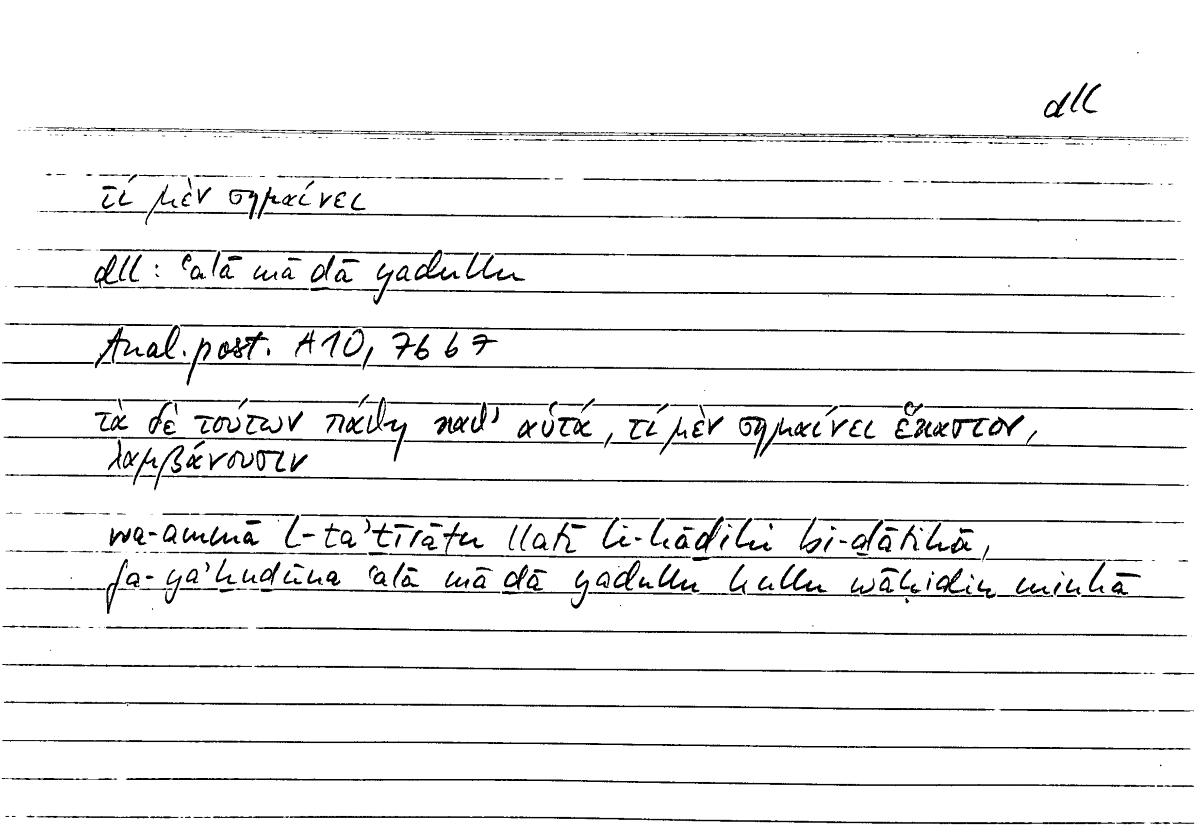 dll
τί μὲν σημαίνει
dll : ʿalā mā ḏā yadullu
Anal. post. A 10, 76 b 7
τὰ δὲ τούτων πάθη καθ' αὑτά, τί μὲν σημαίνει ἕκαστον,
λαμβάνουσιν
wa-ammā l-taʾṯīrātu llatī li-hāḏihi bi-ḏātihā,
fa-yaʾḫuḏūna ʿalā mā ḏā yadullu kullu wāḥidin minhā